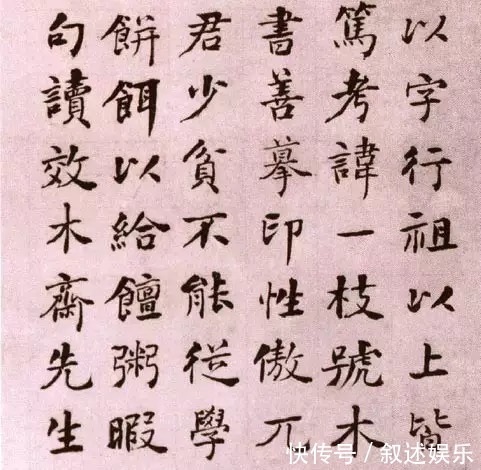 以字行祖以上皆
篤考諱一枝號木
書善摹印性傲兀
君少貧不能從學
餅餌以給饘粥暇
句讀效木齋先生
快传号／叙述娱乐